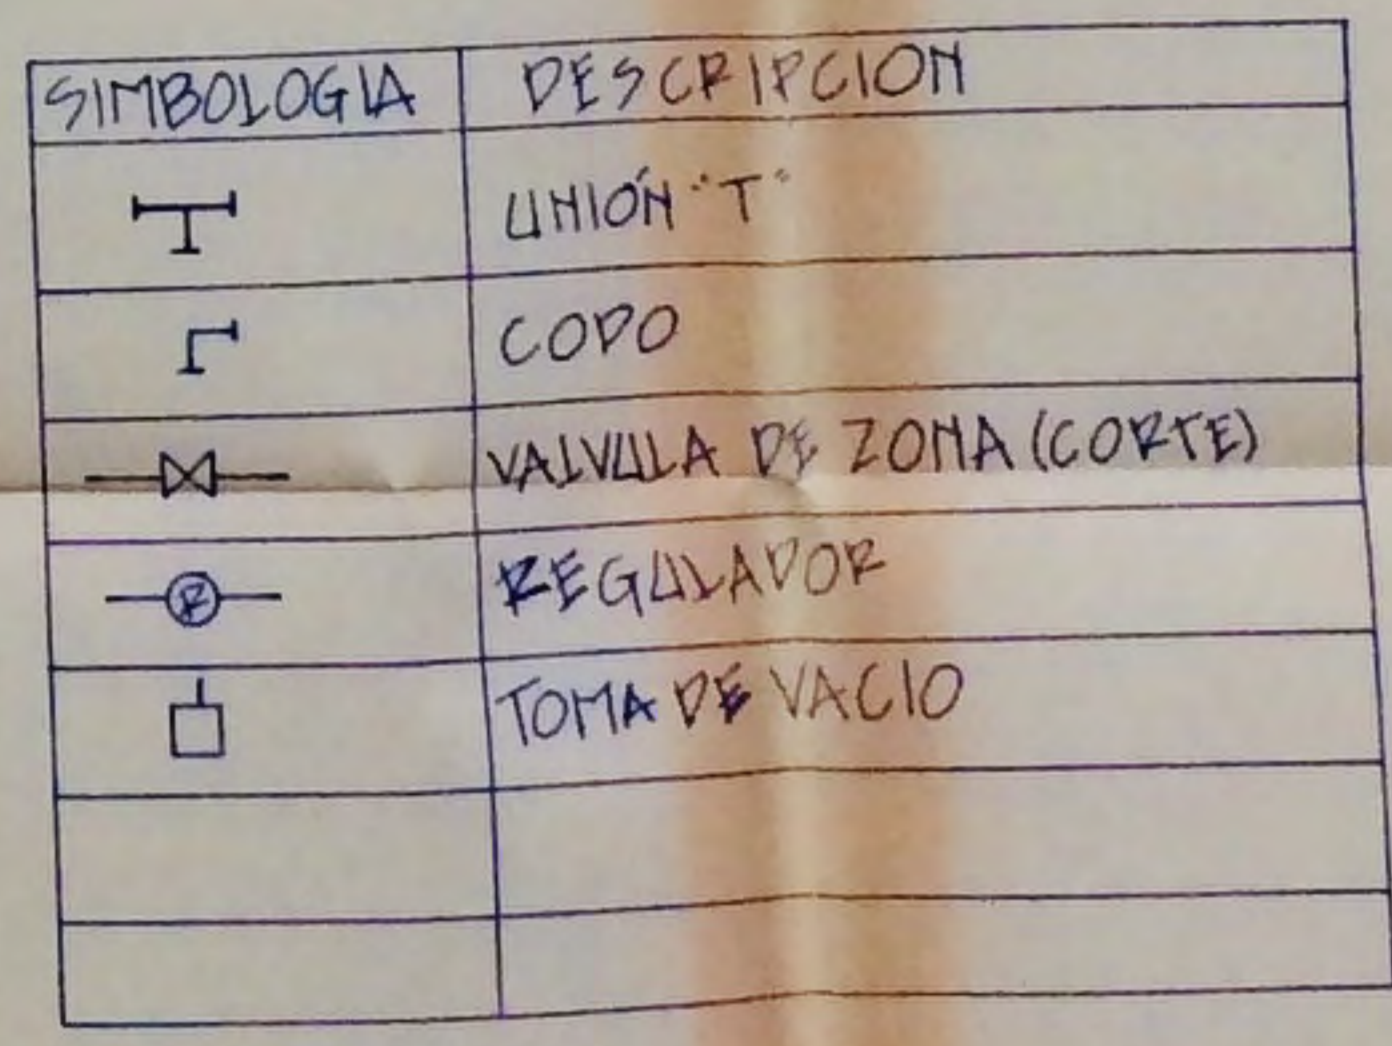 SIMBOLOGIA DESCRIPCION
UNIÓN "T"
CODO
VALVULA DE ZONA (CORTE)
R REGULADOR
TOMA DE VACIO